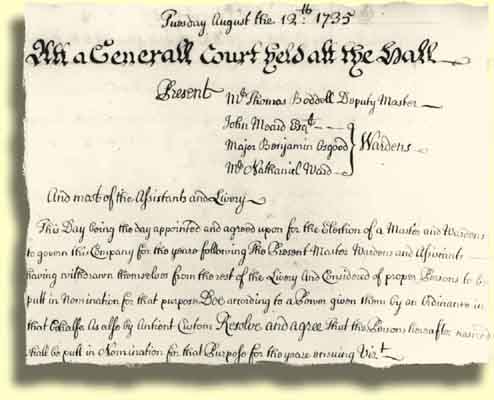 Tuesday August the 12th: 1735
Att a Generall Court held att the Hall
Present Mr Thomas Boddell Deputy Master
John Meard Esqr
Major Benjamin Osgood } Wardens
Mr Nathaniel Ward
And most of the Assistants and Livery
This Day being the day appointed and agreed upon for the Election of a Master and Wardens
to govern this Company for the yeare following The Present Master Wardens and Assistants
having withdrawn themselves from the rest of the Livery And Considered of proper Persons to be
putt in Nomination for that purpose Doe according to a Power given them by an Ordinance in
that Behalfe As also by Antient Custom Resolve and agree That the Persons hereafter named
shall be putt in Nomination for that Purpose for the yeare ensuing Vizt